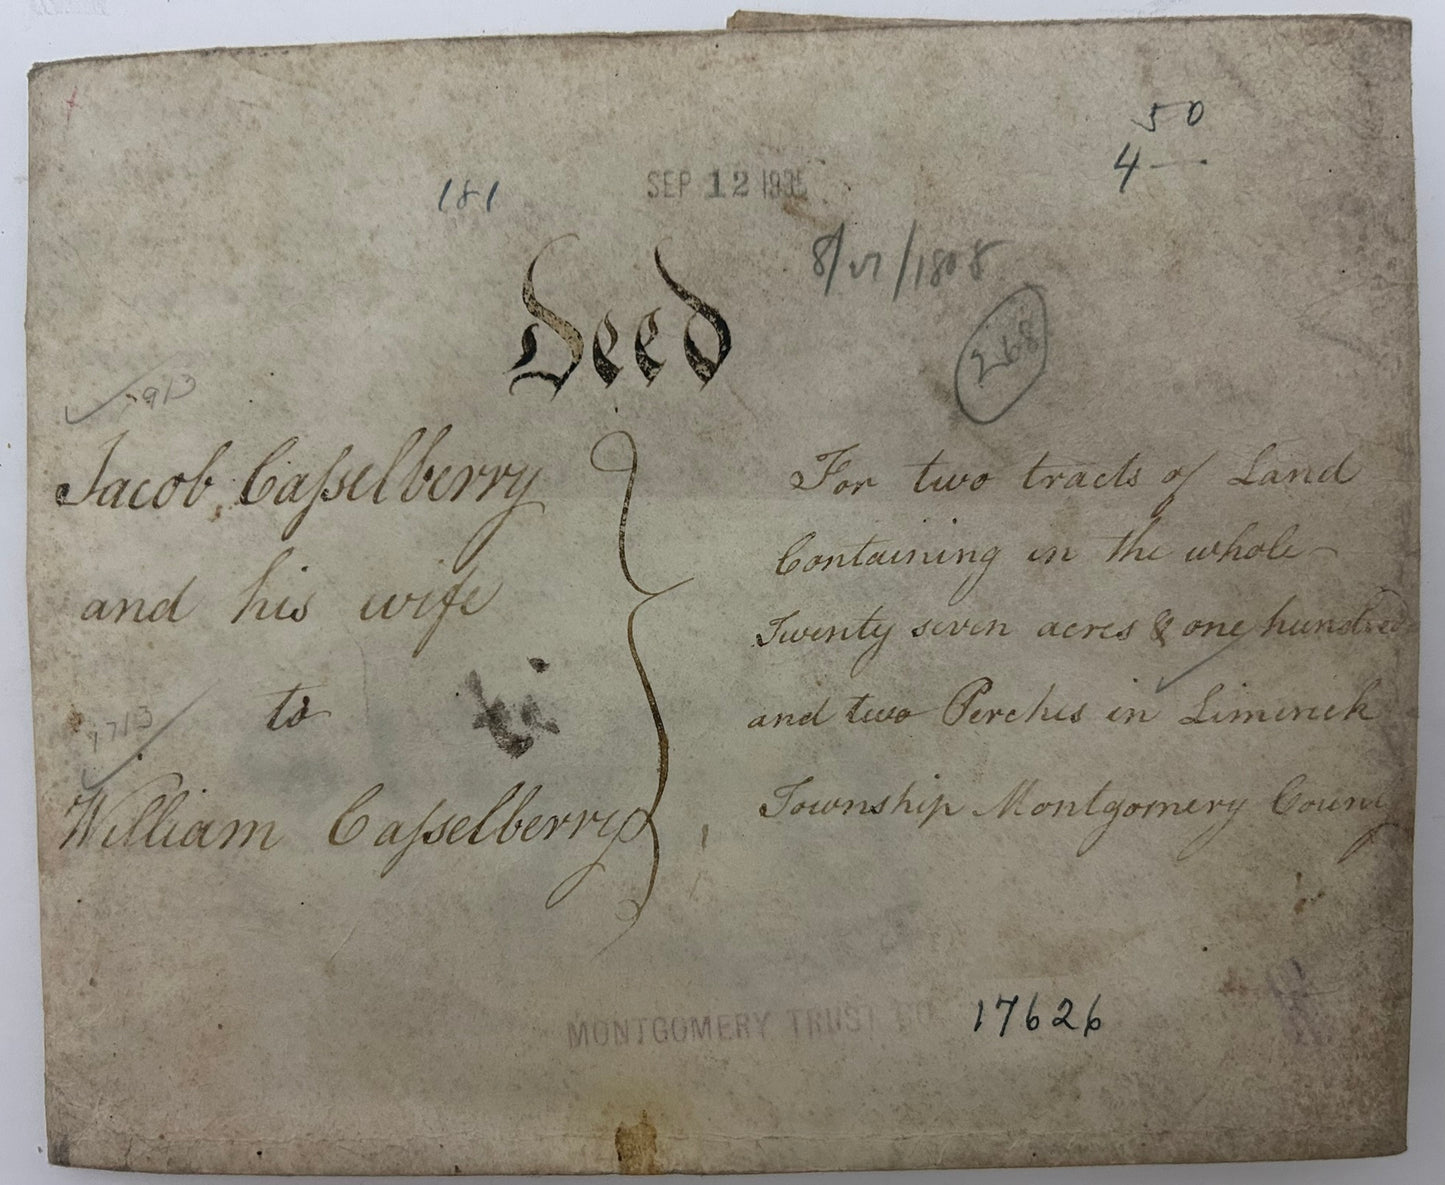 50
4 —
181
SEP 12 1935
8/27/1808
Deed
268
Jacob Caſselberry
and his wife
to
William Caſselberry
For two tracts of Land
Containing in the whole
Twenty seven acres & one hundred
and two Perches in Limerick
Township Montgomery County
MONTGOMERY TRUST CO.
17626